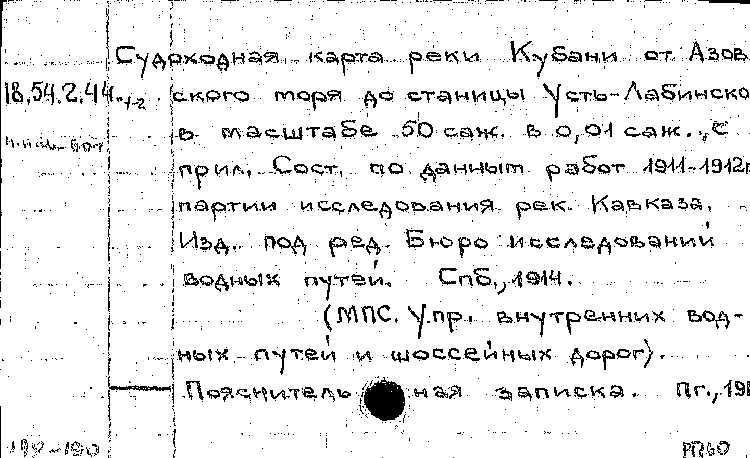 Судоходная карта реки Кубани от Азов
18.54.2.44.1-2 ского моря до станицы Усть-Лабинско
в масштабе 50 саж. в 0,01 саж., с
прил. Сост. по данным работ 1911-1912г
партии исследования рек. Кавказа.
Изд. под ред. Бюро исследований
водных путей. Спб., 1914.
(МПС. Упр. внутренних вод-
ных путей и шоссейных дорог).
Пояснительная записка. Пг., 191
199-190 РП60